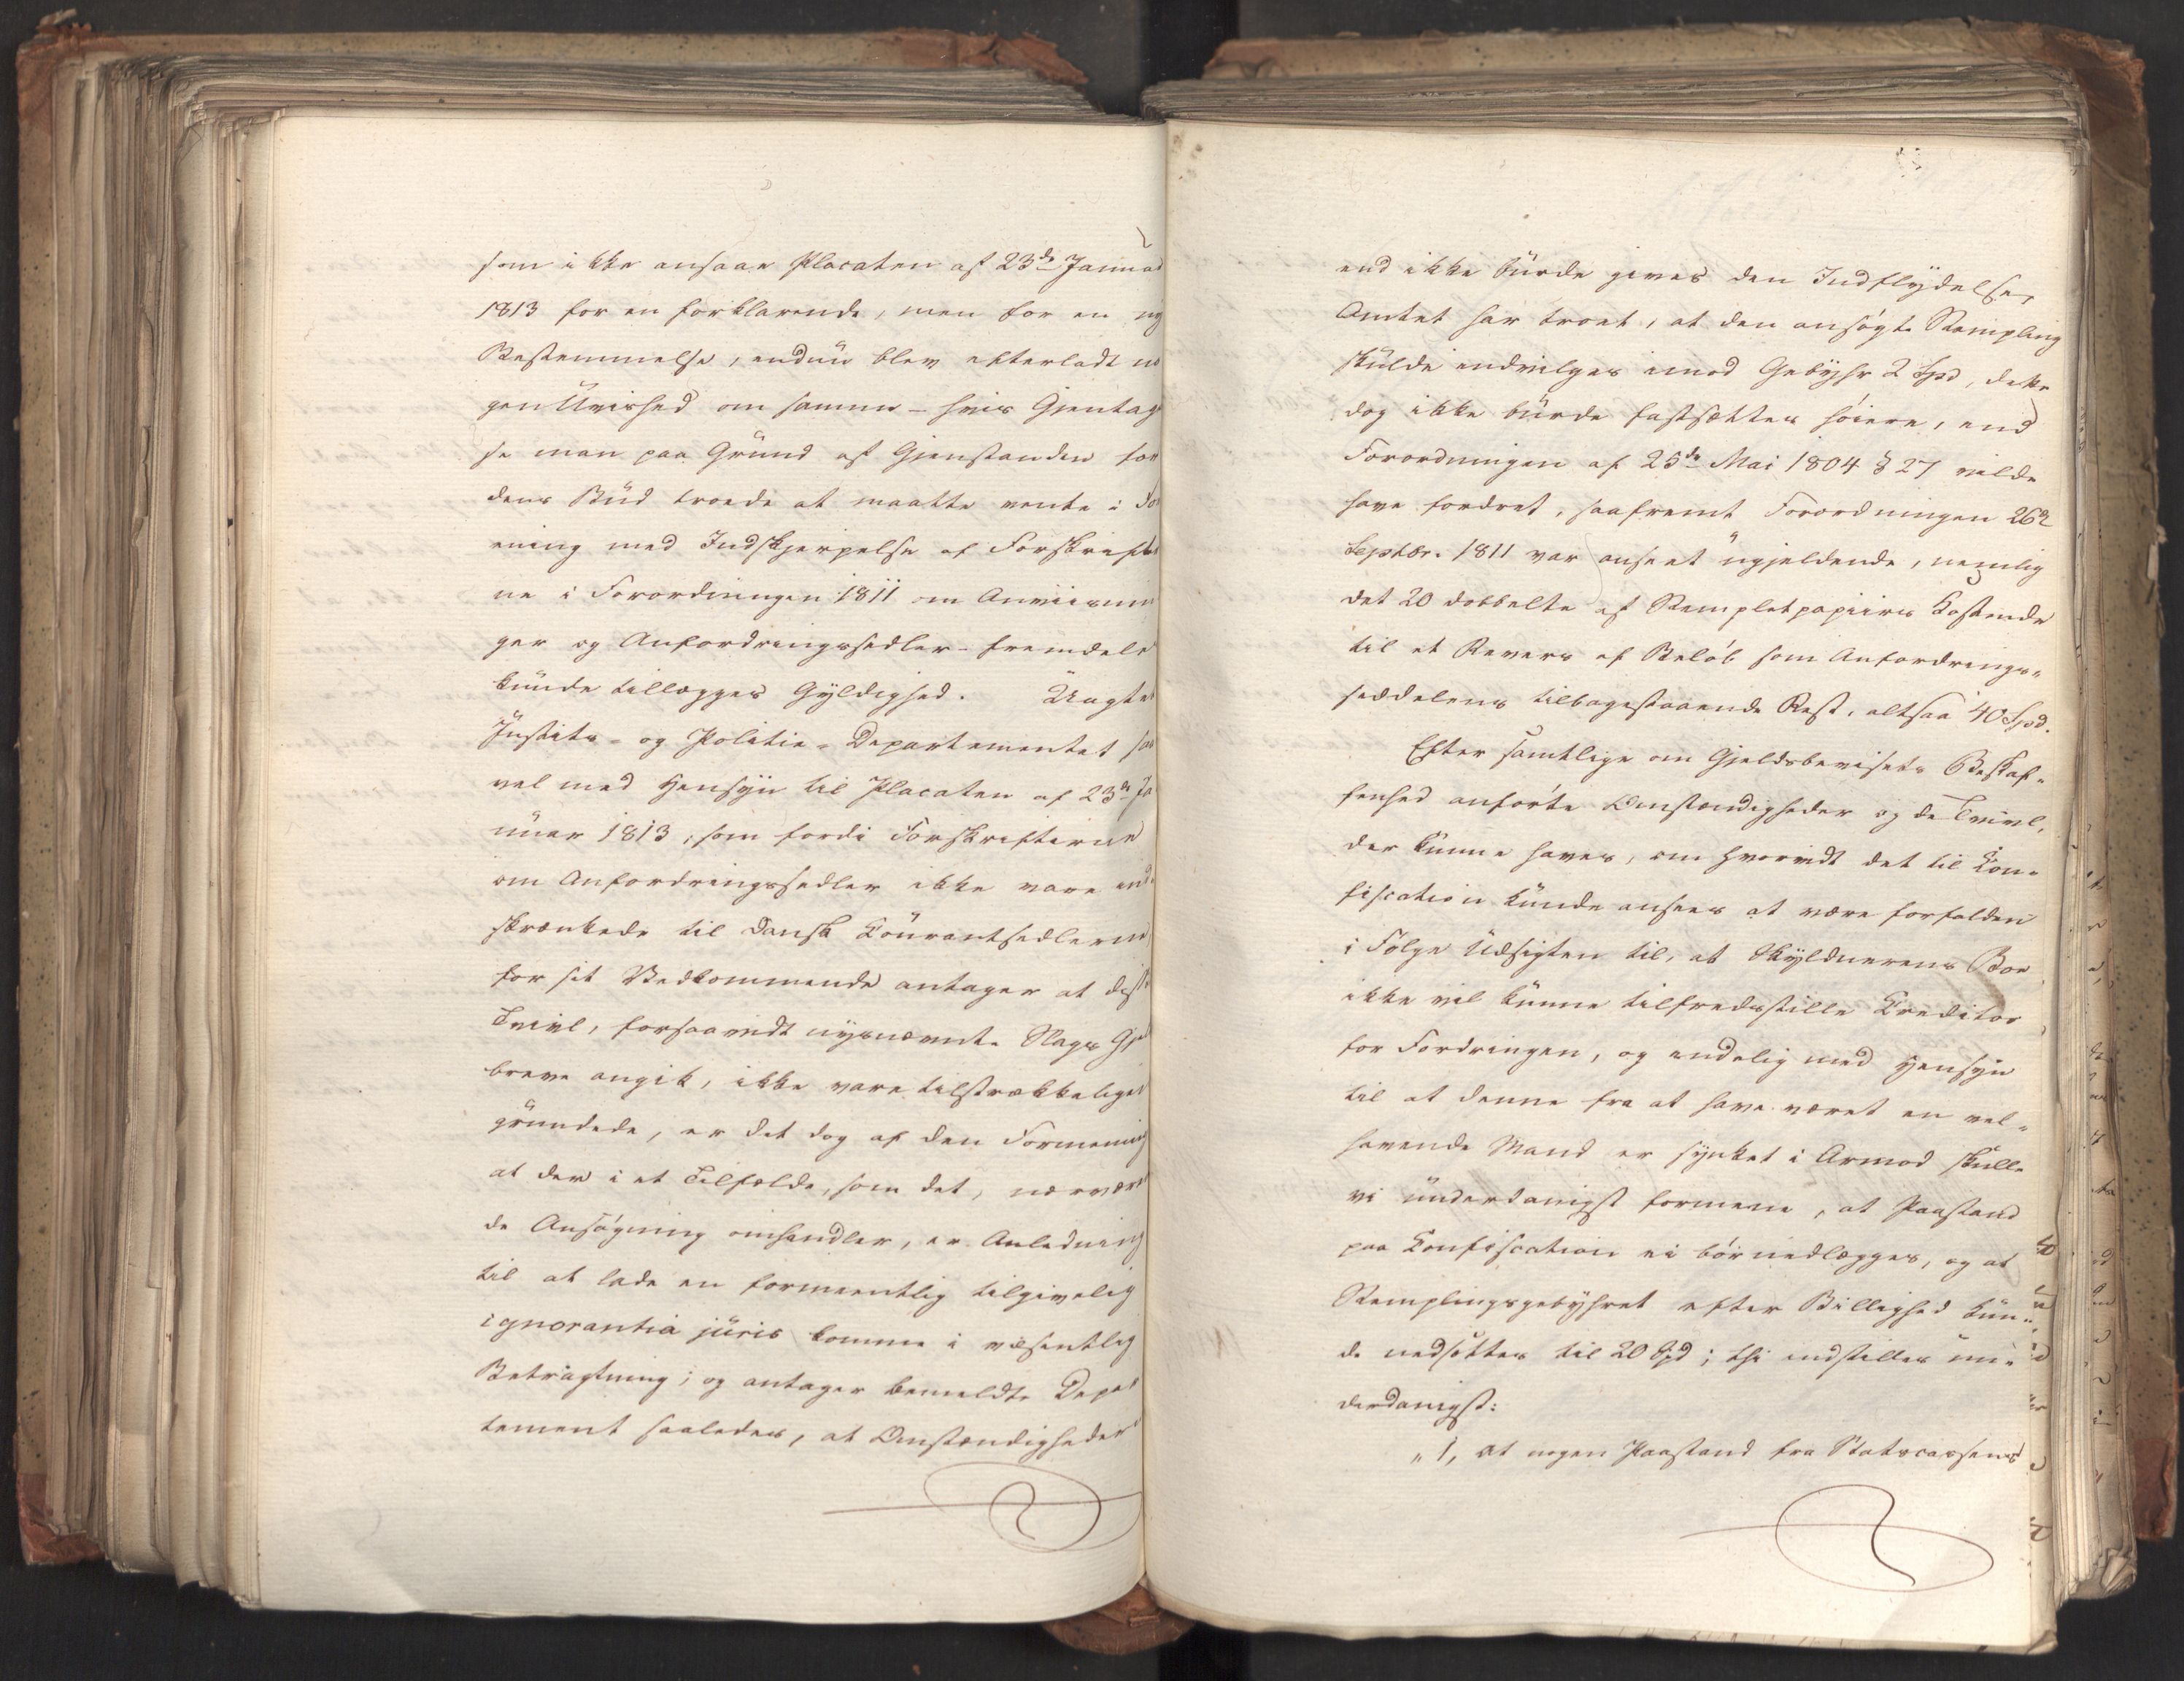 som ikke ansaae Placaten af 23de Januar
1813 for en forklarende, men for en ny
Bestemmelse, endnu blev efterladt no
gen Uvished om samme – hvis Gjentagel
se man paa Grund af Gjenstanden for
dens Bud troede at maatte vente i For
ening med Indskjerpelse af Forskrifter
ne i Forordningen 1811 om Anviisnin
ger og Anfordringssedler – fremdeles
kunde tillægges Gyldighed. Uagtet
Justits- og Politie-Departementet saa
vel med Hensyn til Placaten af 23de Ja
nuar 1813, som fordi Forskrifterne
om Anfordringssedler ikke vare ind-
skrænkede til Dansk Courantsedlerne,
for sit Vedkommende antager at disse
Tvivl, forsaavidt nysnævnte Slags Gjelds
breve angik, ikke vare tilstrækkeligen
grundede, er det dog af den Formening
at der i et Tilfælde, som det, nærværen
de Ansøgning omhandler, er Anledning
til at lade en formeentlig tilgivelig
ignorantia juris komme i væsentlig
Betragtning; og antager bemeldte Depar
tement saaledes, at Omstændigheder
end ikke burde gives den Indflydelse,
Amtet har troet, at den ansøgte Stempling
skulde indvilges imod Gebyhr 2 Spd, dette
dog ikke burde fastsættes høiere, end
Forordningen af 25de Mai 1804 § 27 vilde
have fordret, saafremt Forordningen 26de
Septbr. 1811 var anseet ugjeldende, nemlig
det 20 dobbelte af Stemplet papiirs Kostende
til et Revers af Beløb som Anfordrings-
seddelens tilbagestaaende Rest, altsaa 40 Spd.
Efter samtlige om Gjeldsbevisets Beskaf-
fenhed anførte Omstændigheder og de Tvivl,
der kunne haves, om hvorvidt det til Con-
fiscation kunde ansees at være forfalden
i Følge Udsigten til, at Skyldnerens Boe
ikke vil kunne tilfredsstille Creditor
for Fordringen, og endelig med Hensyn
til at denne fra at have været en vel-
havende Mand er synket i Armod skulle
vi underdanigst formene, at Paastand
paa Confiscation ei bør nedlægges, og at
Stemplingsgebyhret efter Billighed kun-
de nedsættes til 20 Spd; thi indstilles un-
derdanigst:
„1, at ingen Paastand fra Statscassens